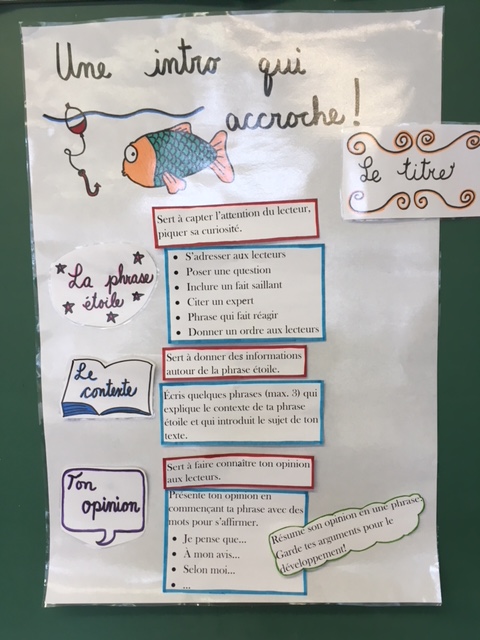 Une intro qui
accroche!
Le titre
Sert à capter l'attention du lecteur,
piquer sa curiosité.
La phrase
étoile
• S'adresser aux lecteurs
• Poser une question
• Inclure un fait saillant
• Citer un expert
• Phrase qui fait réagir
• Donner un ordre aux lecteurs
Le
contexte
Sert à donner des informations
autour de la phrase étoile.
Écris quelques phrases (max. 3) qui
explique le contexte de ta phrase
étoile et qui introduit le sujet de ton
texte.
Ton
opinion
Sert à faire connaître ton opinion
aux lecteurs.
Présente ton opinion en
commençant ta phrase avec des
mots pour s'affirmer.
• Je pense que...
• À mon avis...
• Selon moi...
• ...
Résume son opinion en une phrase.
Garde tes arguments pour le
développement!